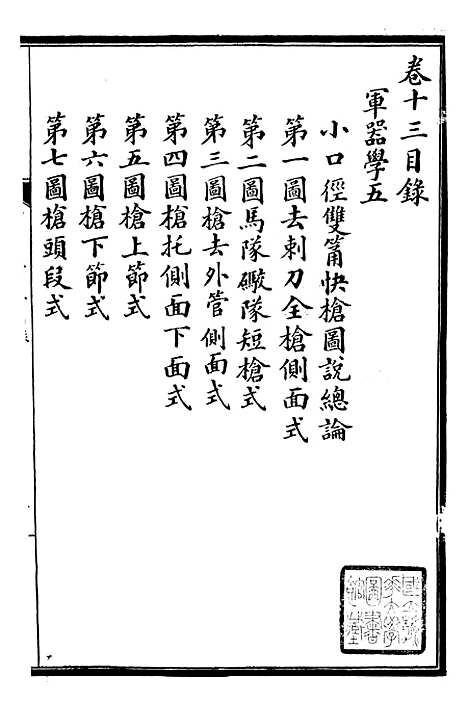 卷十三目錄
軍器學五
小口徑雙筩快槍圖說總論
第一圖去刺刀全槍側面式
第二圖馬隊礮隊短槍式
第三圖槍去外管側面式
第四圖槍托側面下面式
第五圖槍上節式
第六圖槍下節式
第七圖槍頭段式